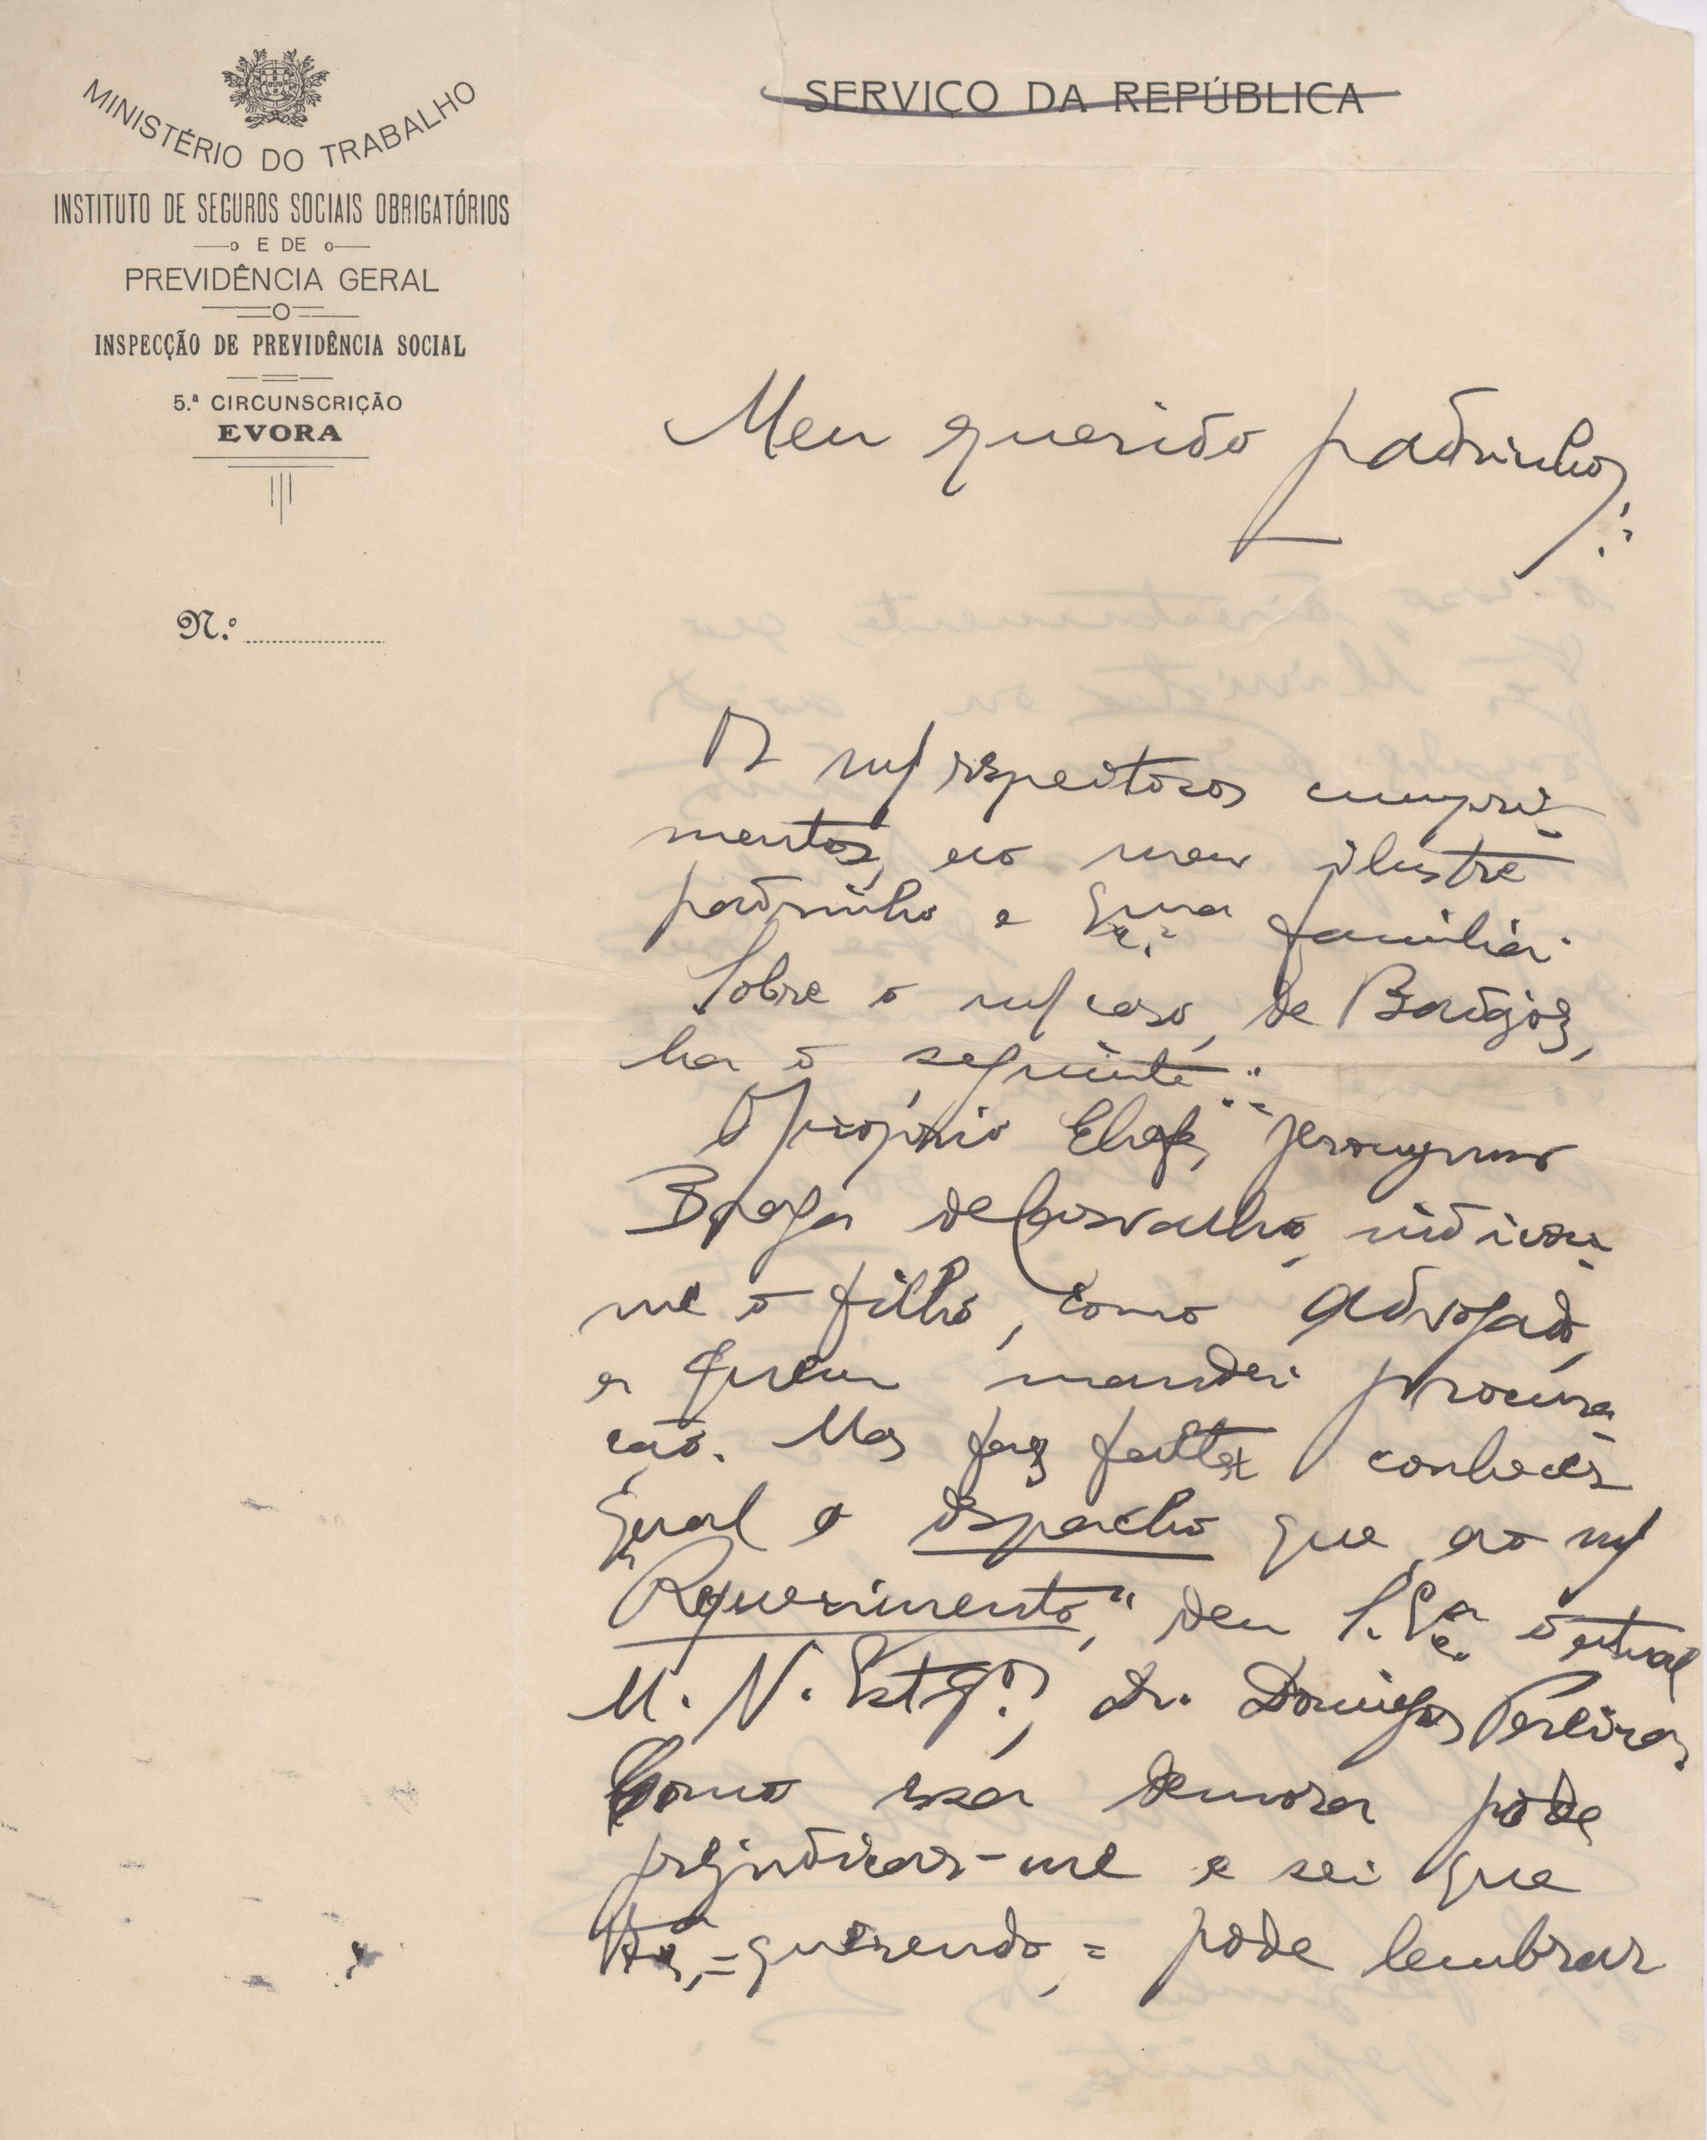 MINISTÉRIO DO TRABALHO
INSTITUTO DE SEGUROS SOCIAIS OBRIGATÓRIOS
E DE
PREVIDÊNCIA GERAL
INSPECÇÃO DE PREVIDÊNCIA SOCIAL
5.ª CIRCUNSCRIÇÃO
EVORA
N.º
SERVIÇO DA REPÚBLICA
Meu querido padrinho,
respeitosos cumpri-
mentos, ao meu ilustre
padrinho e familia.
Sobre o caso, de Badajoz,
ha o seguinte:
O proprio Jeronymo
Braga de Carvalho, indicou-
me o filho, como advogado,
a quem mandei procura-
ção. Mas faz falta conhecer
qual o despacho que, ao
Requerimento", deu o actual
M. N. Dr. Domingos Pereira,
Como essa demora pode
prejudicar-me e sei que
= querendo, = pode lembrar